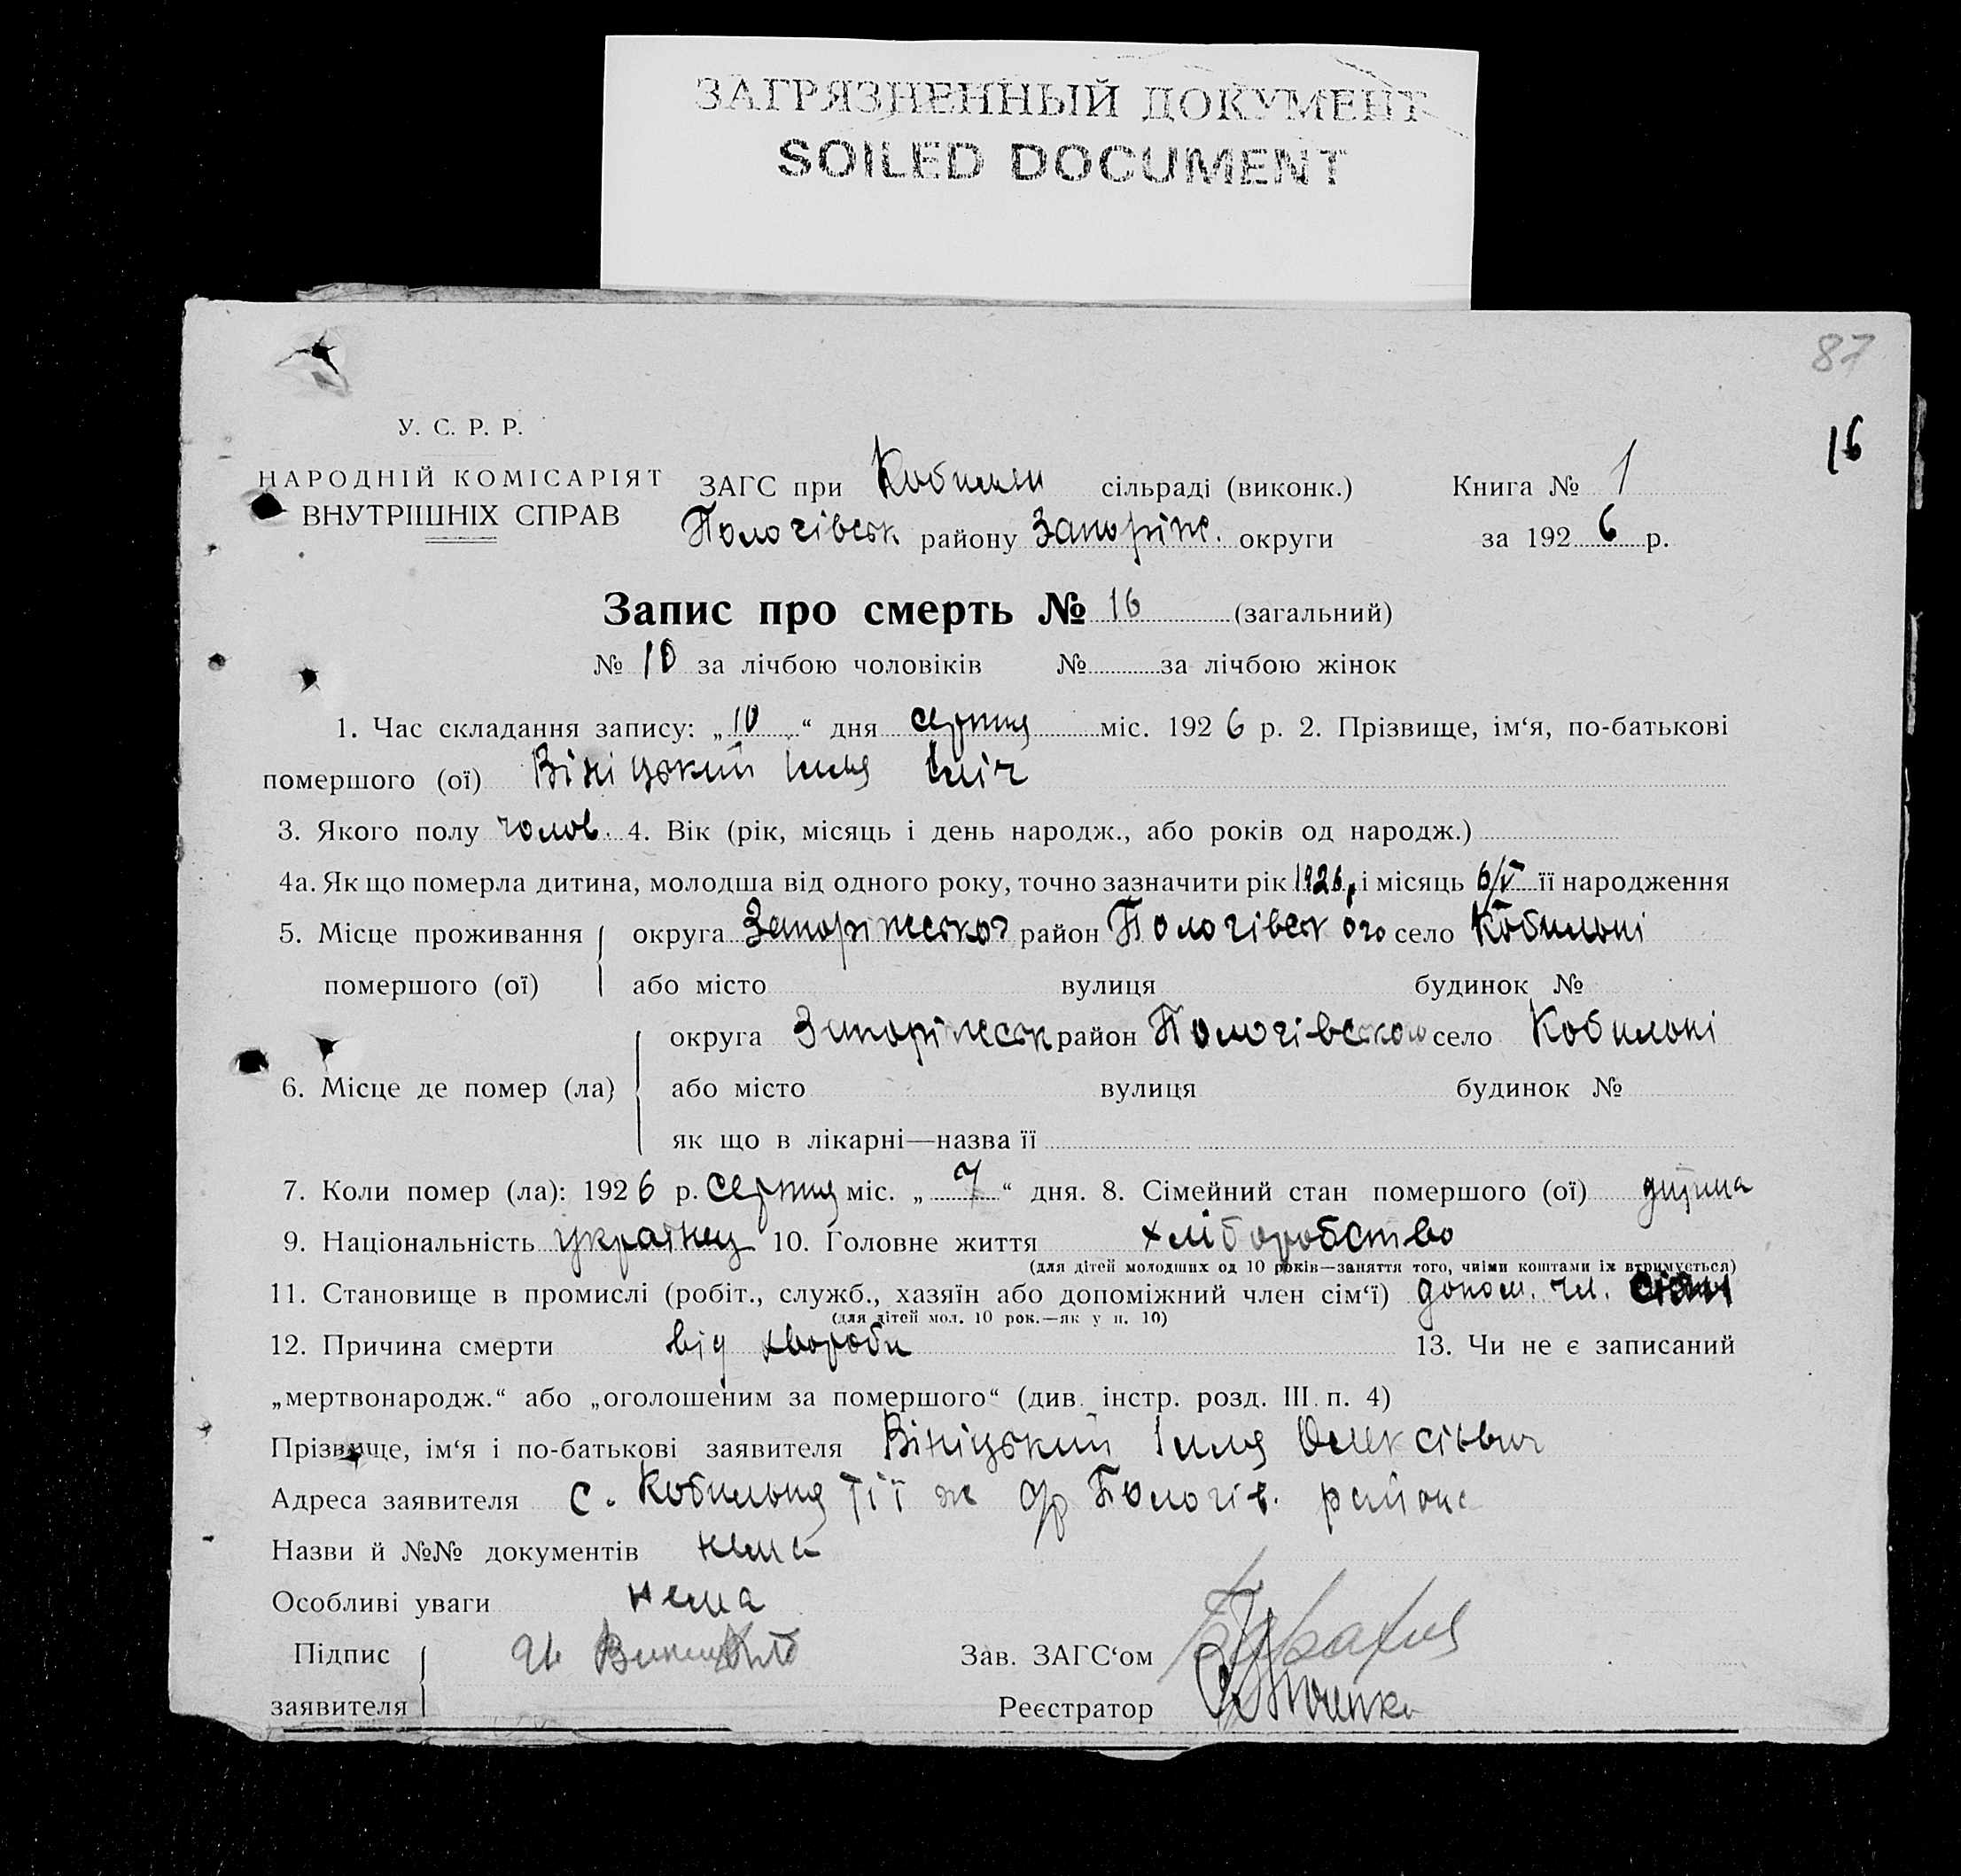 ЗАГРЯЗНЕННЫЙ ДОКУМЕНТ
SOILED DOCUMENT
87
16
У. С. Р. Р.
НАРОДНІЙ КОМІСАРІЯТ
ВНУТРІШНІХ СПРАВ
ЗАГС при сільраді (виконк.) Книга № 1
Пологівськ району Запоріж. округи за 1926 р.
Запис про смерть № 16 (загальний)
№ 10 за лічбою чоловіків № за лічбою жінок
1. Час складання запису: „10“ дня серпня міс. 1926 р. 2. Прізвище, ім‘я, по-батькові
помершого (ої) Вініцький Ілля Ілліч
3. Якого полу чолов. 4. Вік (рік, місяць і день народж., або років од народж.)
4а. Як що померла дитина, молодша від одного року, точно зазначити рік 1926, і місяць 6/V її народження
5. Місце проживання округа Запоріжської район Пологівського село Кобильоні
помершого (ої) або місто вулиця будинок №
округа Запоріжськ район Пологівсько село Кобильоні
6. Місце де помер (ла) або місто вулиця будинок №
як що в лікарні—назва її
7. Коли помер (ла): 1926 р. серпня міс. „7“ дня. 8. Сімейний стан помершого (ої) дитина
9. Національність українец 10. Головне життя хліборобство
(для дітей молодших од 10 років—заняття того, чиїми коштами їх втримується)
11. Становище в промислі (робіт., служб., хазяїн або допоміжний член сім‘ї) допом. чл.
(для дітей мол. 10 рок.—як у п. 10)
12. Причина смерти від хвороби 13. Чи не є записаний
„мертвонародж.“ або „оголошеним за помершого“ (див. інстр. розд. III п. 4)
Прізвище, ім‘я і по-батькові заявителя Вініцький Ілля Олексієвич
Адреса заявителя с. Кобильоня тії ж о/р Пологів. района
Назви й №№ документів нема
Особливі уваги нема
Підпис
заявителя
Зав. ЗАГС‘ом
Реєстратор